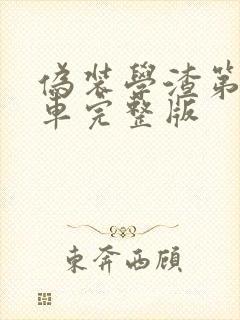 偽裝學渣第
車完整版
東奔西顧